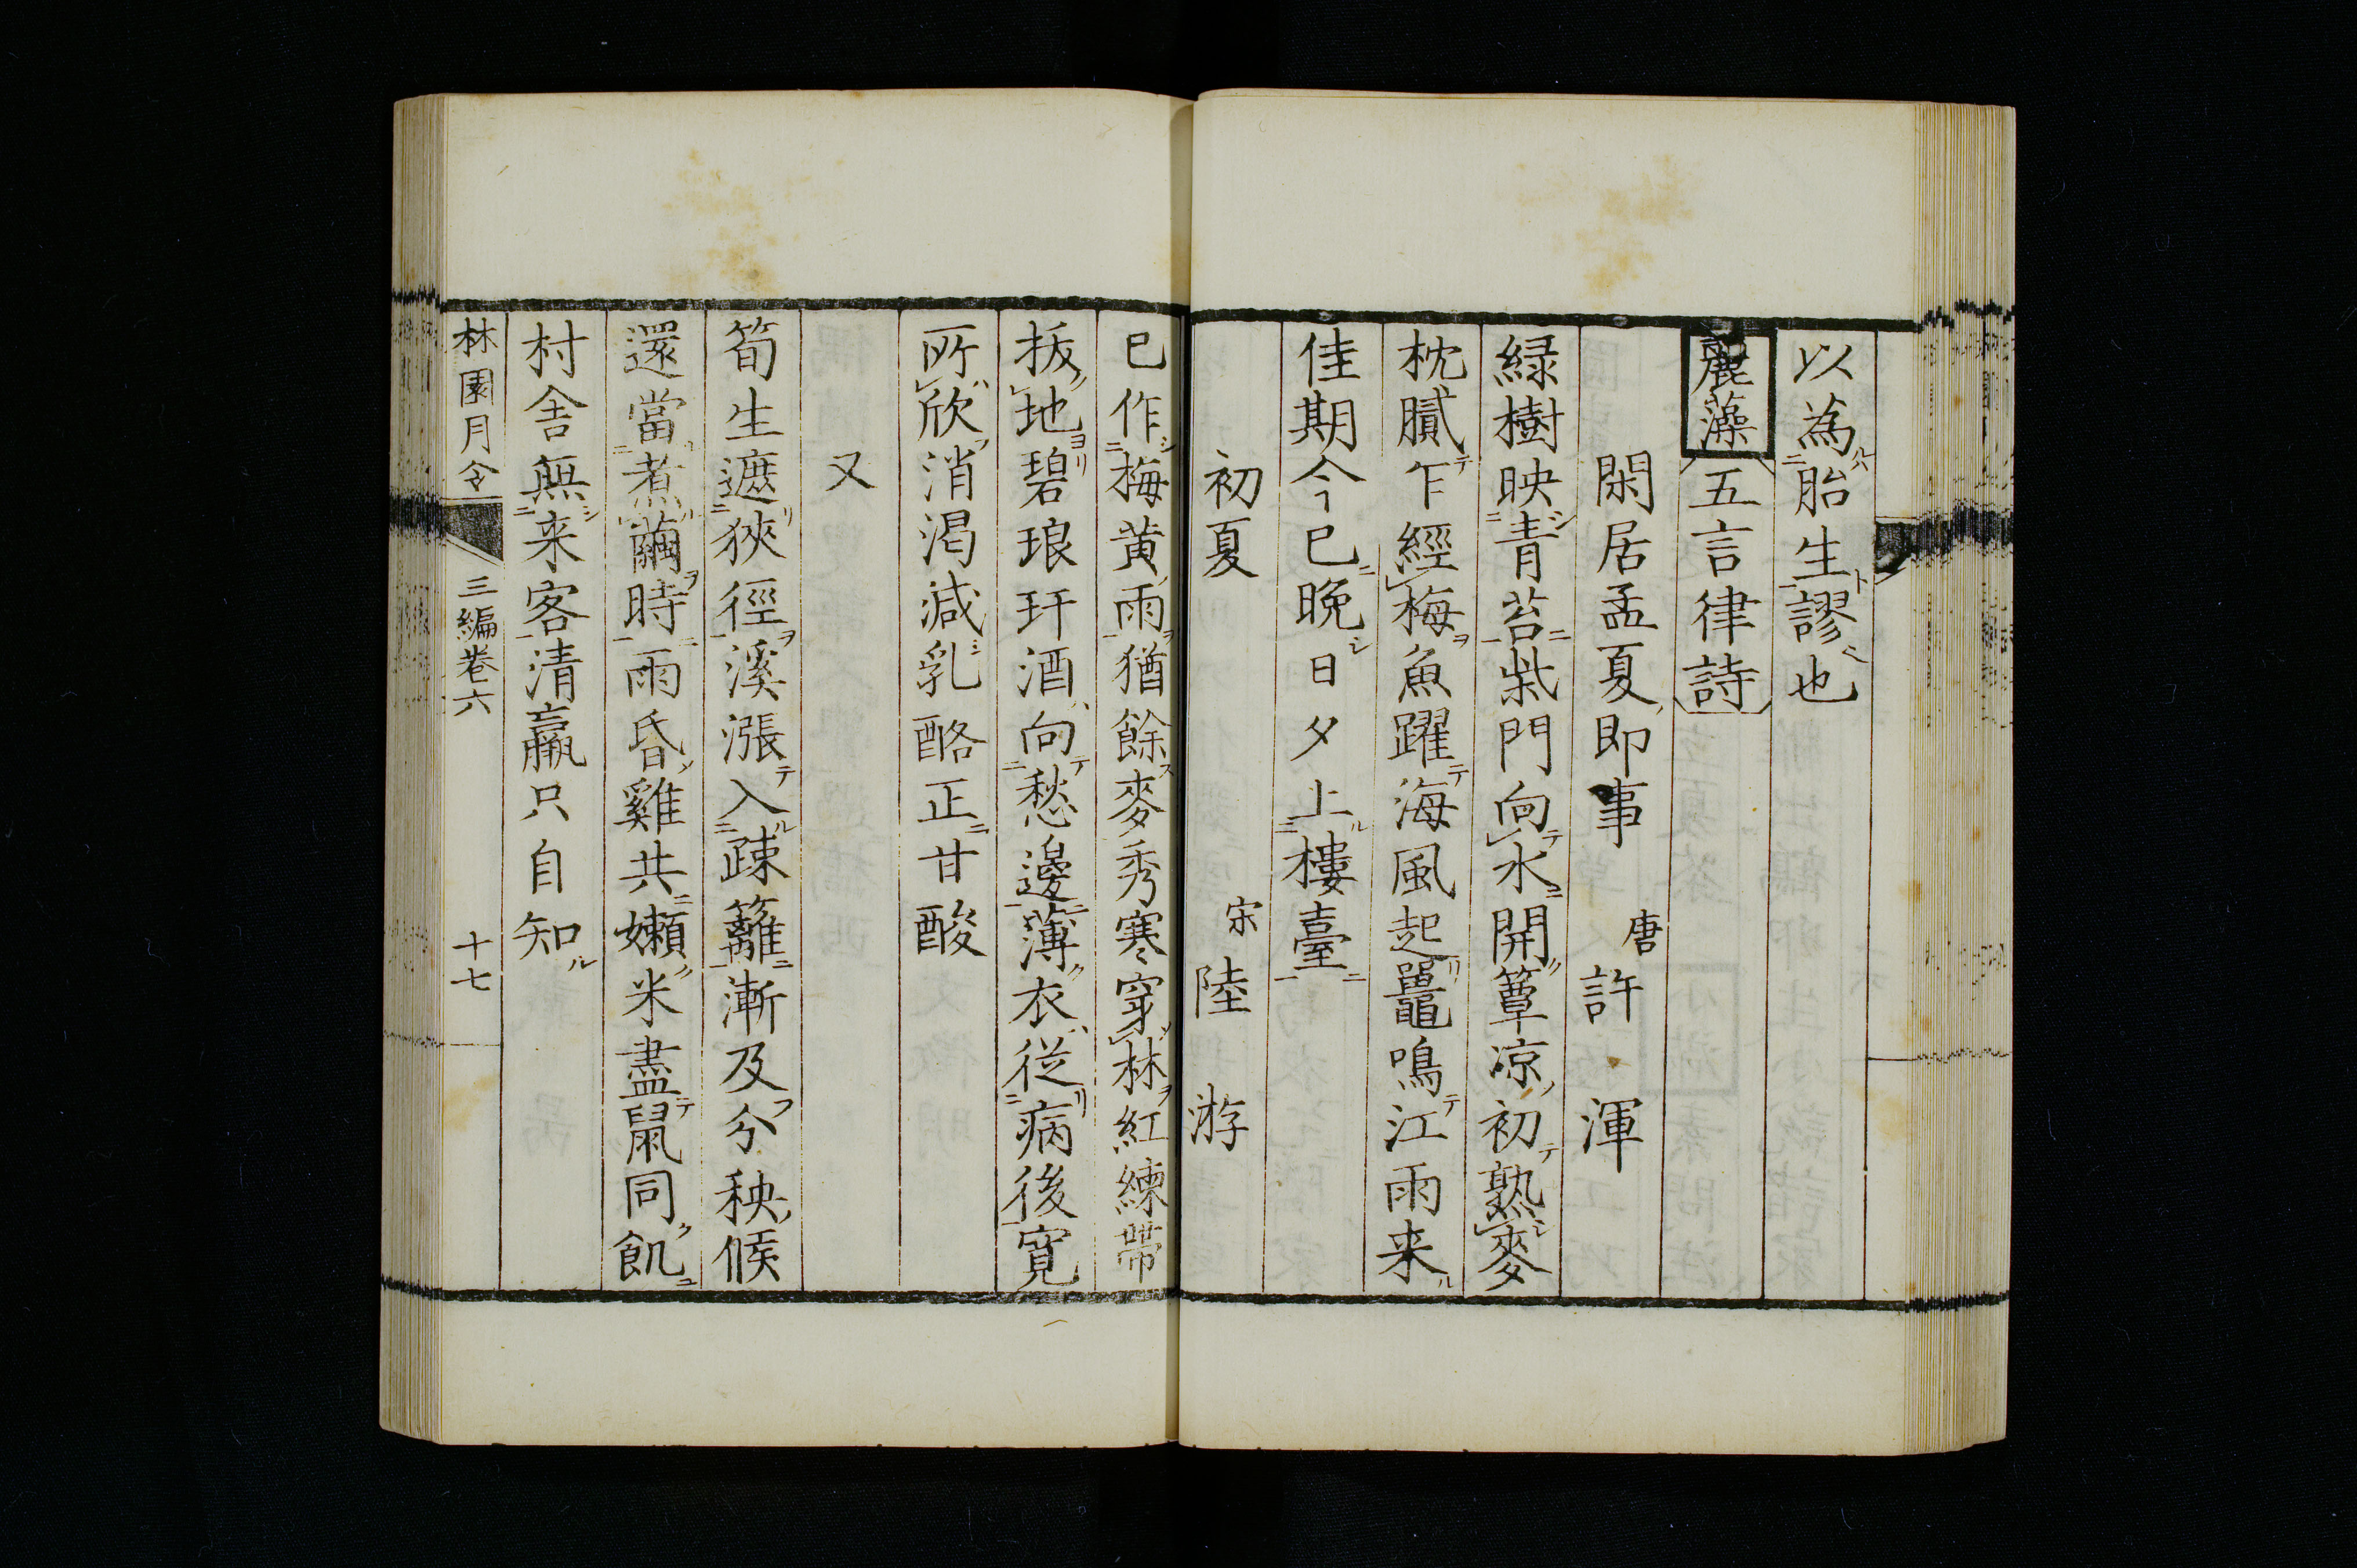 以為胎生謬也
麗藻 五言律詩
閑居孟夏即事 唐 許渾
緑樹映青苔柴門向水開簟凉初熟麥
枕膩乍經梅魚躍海風起鼉鳴江雨来
佳期今已晩日夕上樓臺
初夏 宋 陸游
已作梅黄雨猶餘麥秀寒穿林紅練帶
拔地碧琅玕酒向愁邊薄衣従病後寛
所欣消渇減乳酪正甘酸
又
筍生遮狹徑溪漲入疎籬漸及分秧候
還當煮繭時雨昏雞共嬾米盡鼠同飢
村舎無来客清羸只自知
林園月令 三編巻六 十七